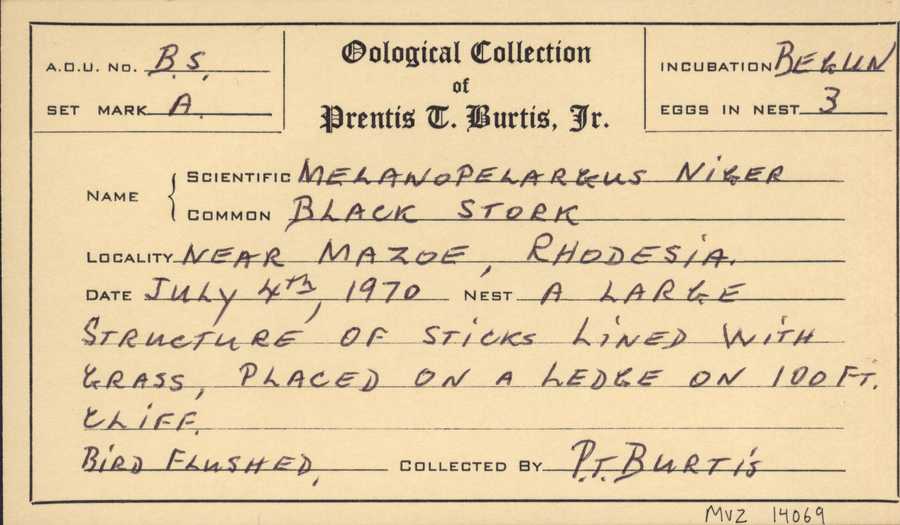 A.O.U. No. B.S.
SET MARK A.
Oological Collection
of
Prentis T. Burtis, Jr.
INCUBATION BEGUN
EGGS IN NEST 3
NAME
SCIENTIFIC MELANOPELARGUS NIGER
COMMON BLACK STORK
LOCALITY NEAR MAZOE, RHODESIA.
DATE JULY 4th, 1970 NEST A LARGE
STRUCTURE OF STICKS LINED WITH
GRASS, PLACED ON A LEDGE ON 100 FT.
CLIFF.
BIRD FLUSHED, COLLECTED BY P.T. BURTIS
MVZ 14069